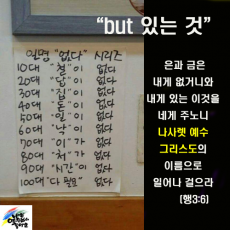 “but 있는 것”
일명 "없다" 시리즈
10대 "철"이 없다
20대 "답"이 없다
30대 "집"이 없다
40대 "돈"이 없다
50대 "일"이 없다
60대 "낙"이 없다
70대 "이"가 없다
80대 "처"가 없다
90대 "시간"이 없다
100대 "다 필요" 없다
은과 금은
내게 없거니와
내게 있는 이것을
네게 주노니
나사렛 예수
그리스도의
이름으로
일어나 걸으라
(행3:6)